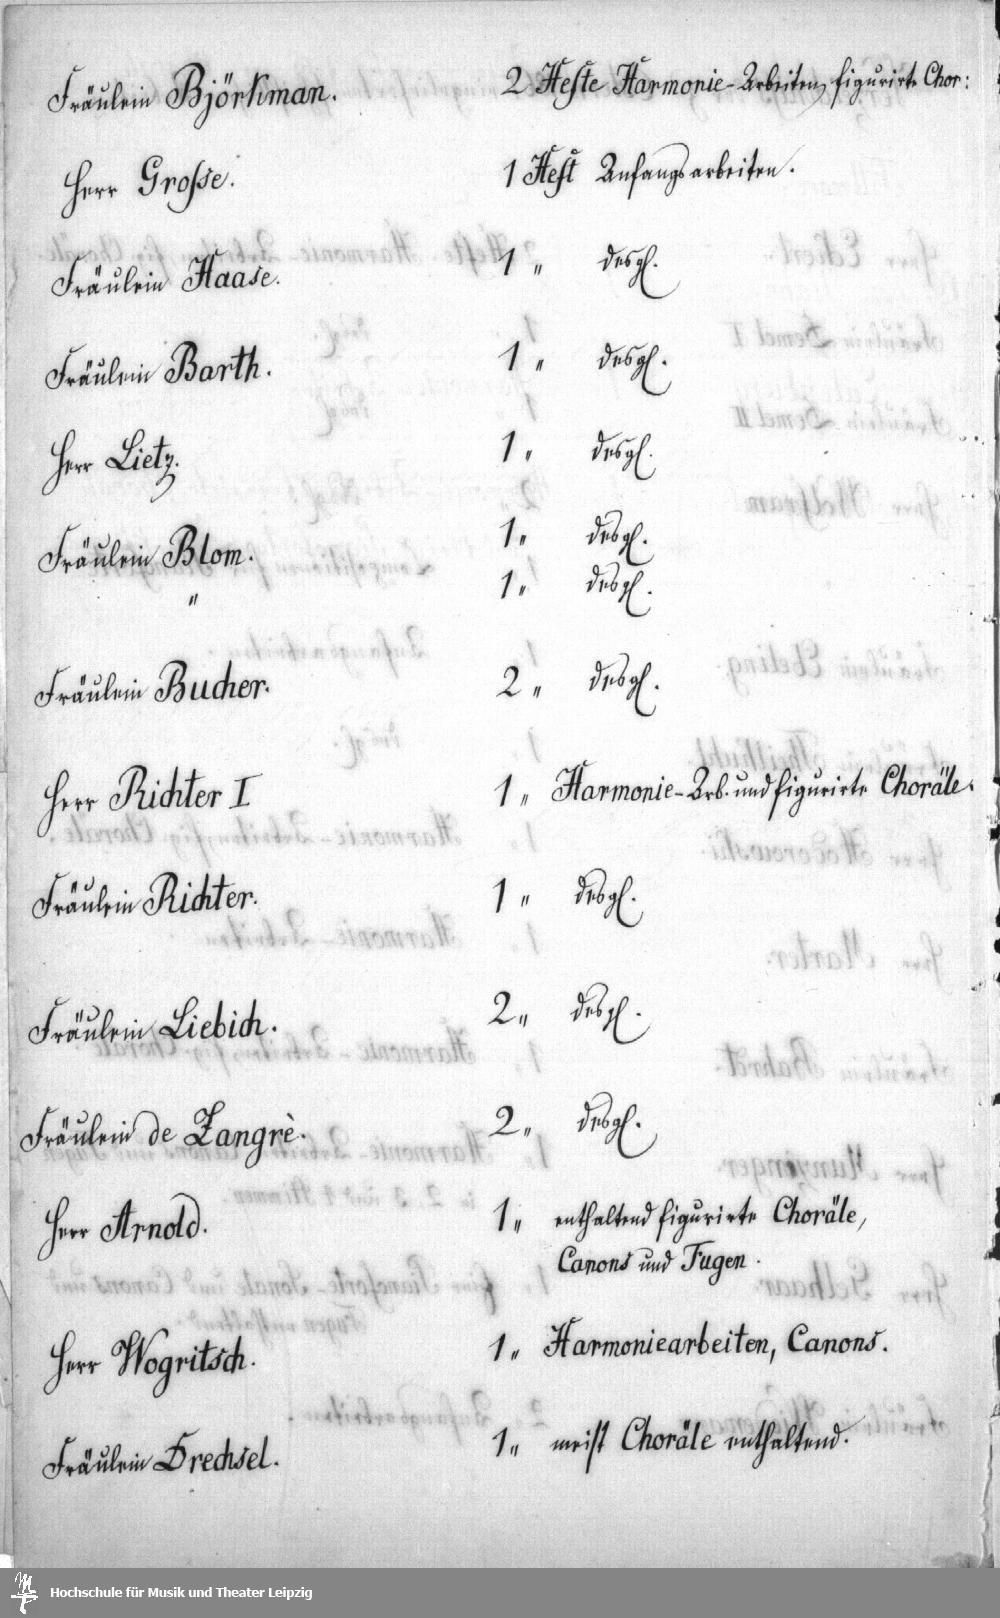 Fräulein Björkman. 2 Hefte Harmonie-Arbeiten, figurirte Chor:
Herr Grosse. 1 Heft Anfangsarbeiten.
Fräulein Haase. 1 " desgl.
Fräulein Barth. 1 " desgl.
Herr Lietz. 1 " desgl.
Fräulein Blom. 1 " desgl.
" 1 " desgl.
Fräulein Bucher. 2 " desgl.
Herr Richter I 1 " Harmonie-Arb. und figurirte Choräle.
Fräulein Richter. 1 " desgl.
Fräulein Liebich. 2 " desgl.
Fräulein de Zangrè. 2 " desgl.
Herr Arnold. 1 " enthaltend figurirte Choräle,
Canons und Fugen.
Herr Wogritsch. 1 " Harmoniearbeiten, Canons.
Fräulein Drechsel. 1 " meist Choräle enthaltend.
Hochschule für Musik und Theater Leipzig